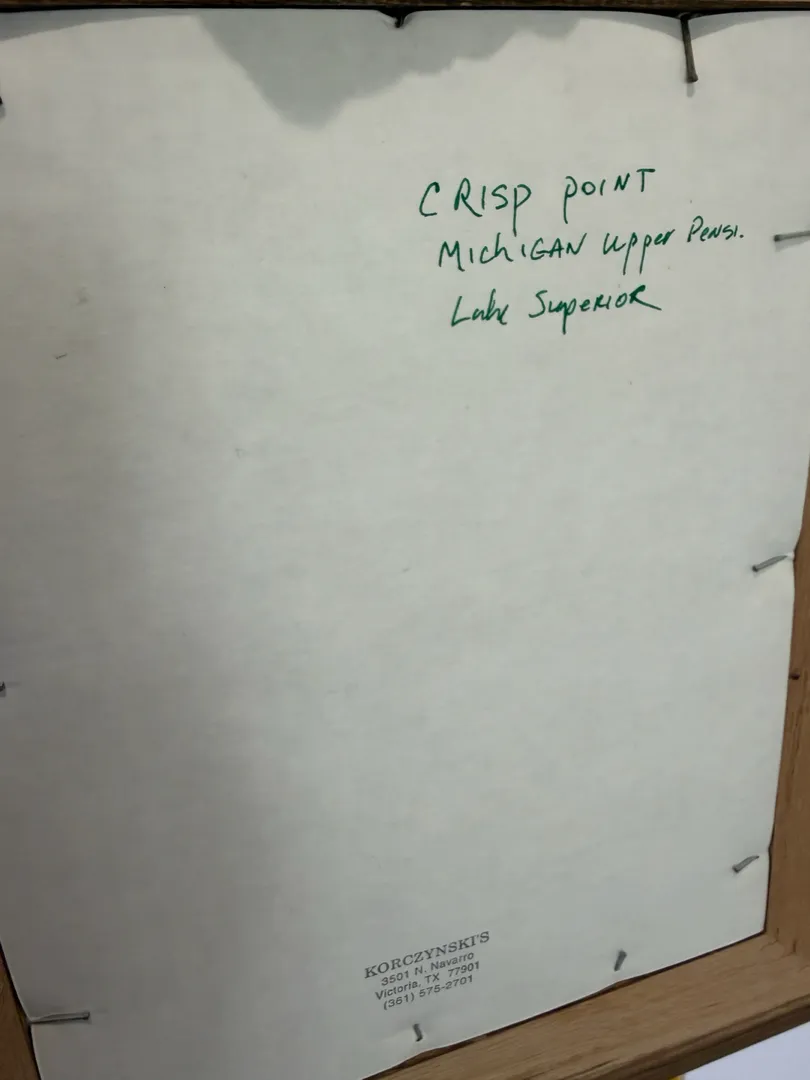 CRISP POINT
MICHIGAN Upper Pensi.
Lake SUPERIOR
KORCZYNSKI'S
3501 N. Navarro
Victoria, TX 77901
(361) 575-2701